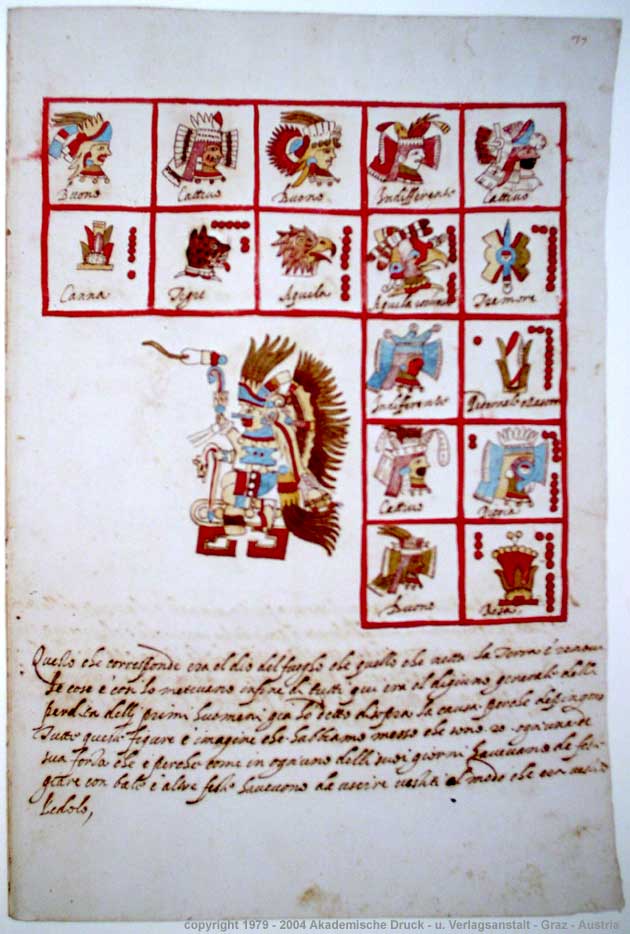 Buono
Cattivo
Buono
Indifferente
Cattivo
Canna
Tigre
Aquila
Aquila
Tremore
Indifferente
Cattivo
Pioggia
Buono
Rosa
Questo che corresponde era el dio del fuogho che quello che netta la Terra è
le cose è con lo metevano infine di tutti qui era il digiuno generale della
perdita delli primi huomeni gia ho detto disopra la causa perche
Tutte queste figure è imagine che habbiamo messo che sono 20 ogn'una de
sua sorte che è perche come in ogn'uno delli suoi giorni havevano de
con balli è altre feste havevono da uscire vestiti al modo che era
L'edolo,
copyright 1979 - 2004 Akademische Druck - u. Verlagsanstalt - Graz - Austria